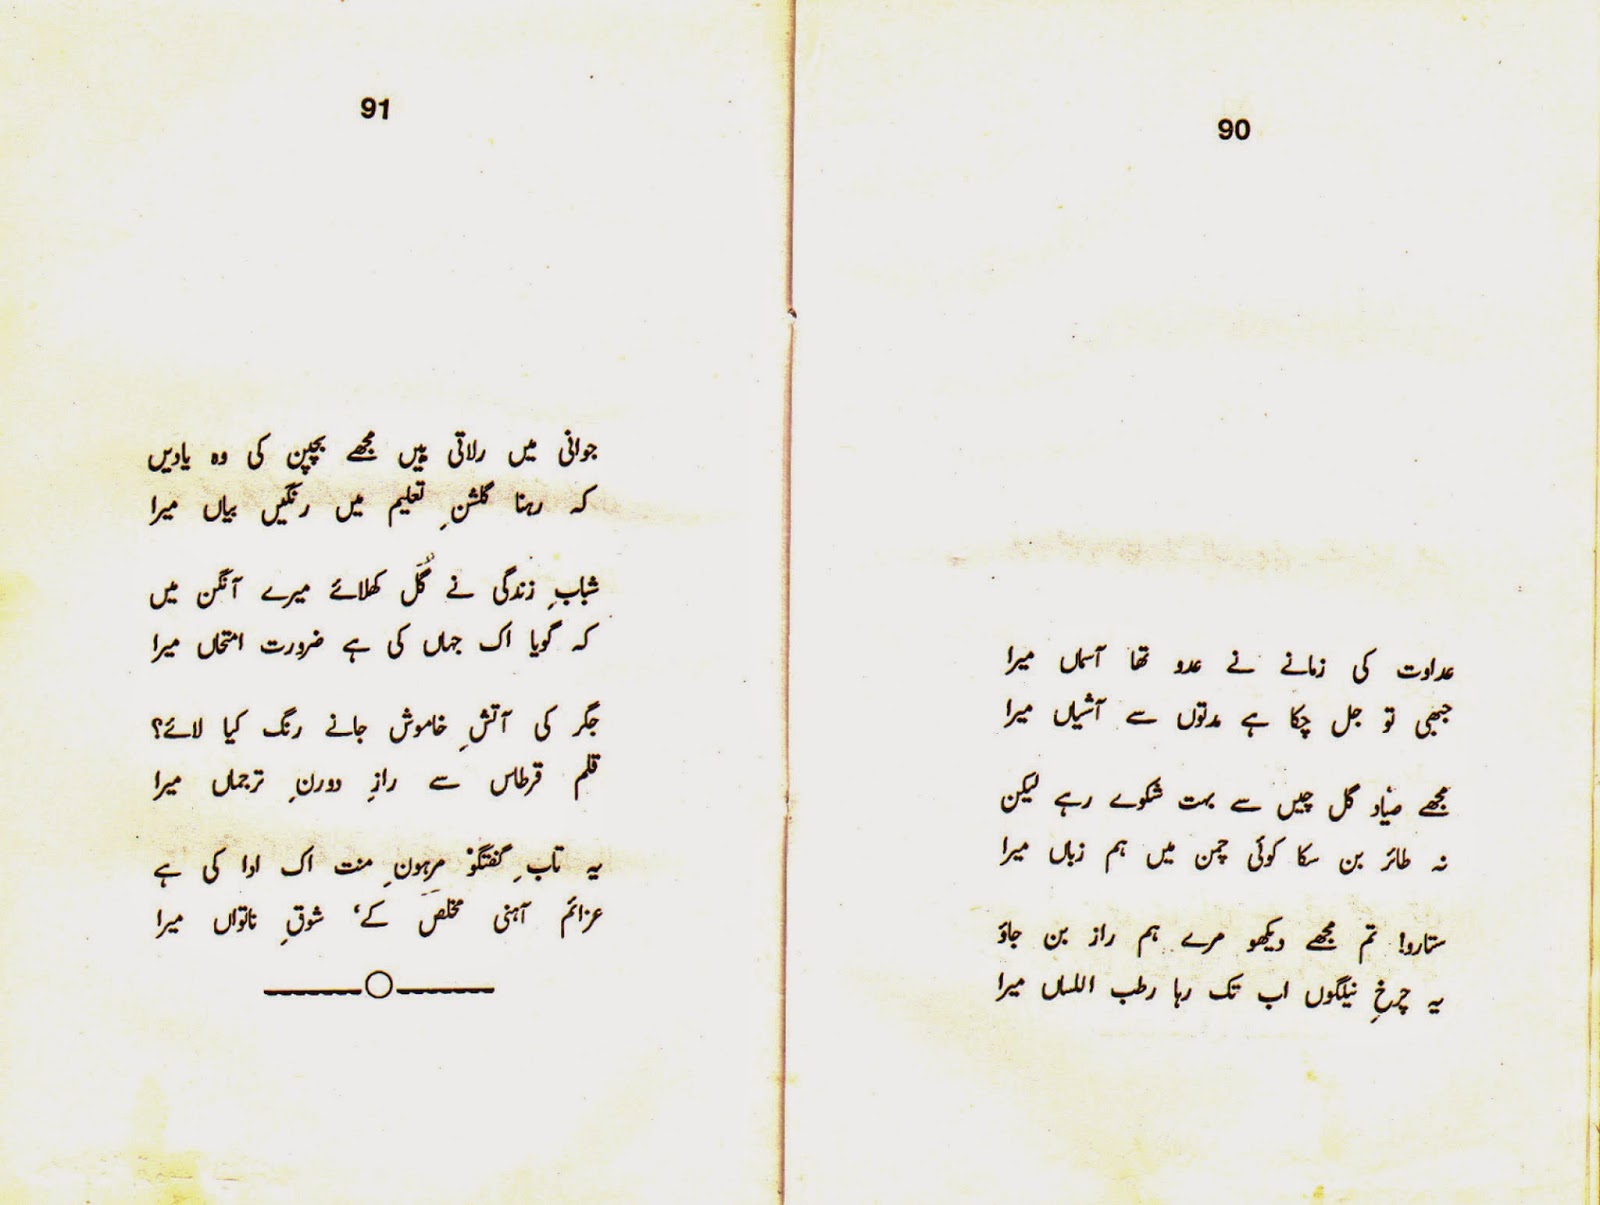 90
عداوت کی زمانے نے عدو تھا آسماں میرا
جبھی تو جل چکا ہے مدتوں سے آشیاں میرا
مجھے صیّاد گل چیں سے بہت شکوے رہے لیکن
نہ طائر بن سکا کوئی چمن میں ہم زباں میرا
ستارو! تم مجھے دیکھو مرے ہم راز بن جاؤ
یہ چرخِ نیلگوں اب تک رہا رطب اللساں میرا
91
جوانی میں رلاتی ہیں مجھے بچپن کی وہ یادیں
کہ رہنا گلشنِ تعلیم میں رنگیں بیاں میرا
شبابِ زندگی نے گُل کھلائے میرے آنگن میں
کہ گویا اک جہاں کی ہے ضرورت امتحاں میرا
جگر کی آتشِ خاموش جانے رنگ کیا لائے؟
قلم قرطاس سے رازِ دورنِ ترجماں میرا
یہ تابِ گفتگو مرہونِ منت اک ادا کی ہے
عزائم آہنی مخلص کے، شوقِ ناتواں میرا